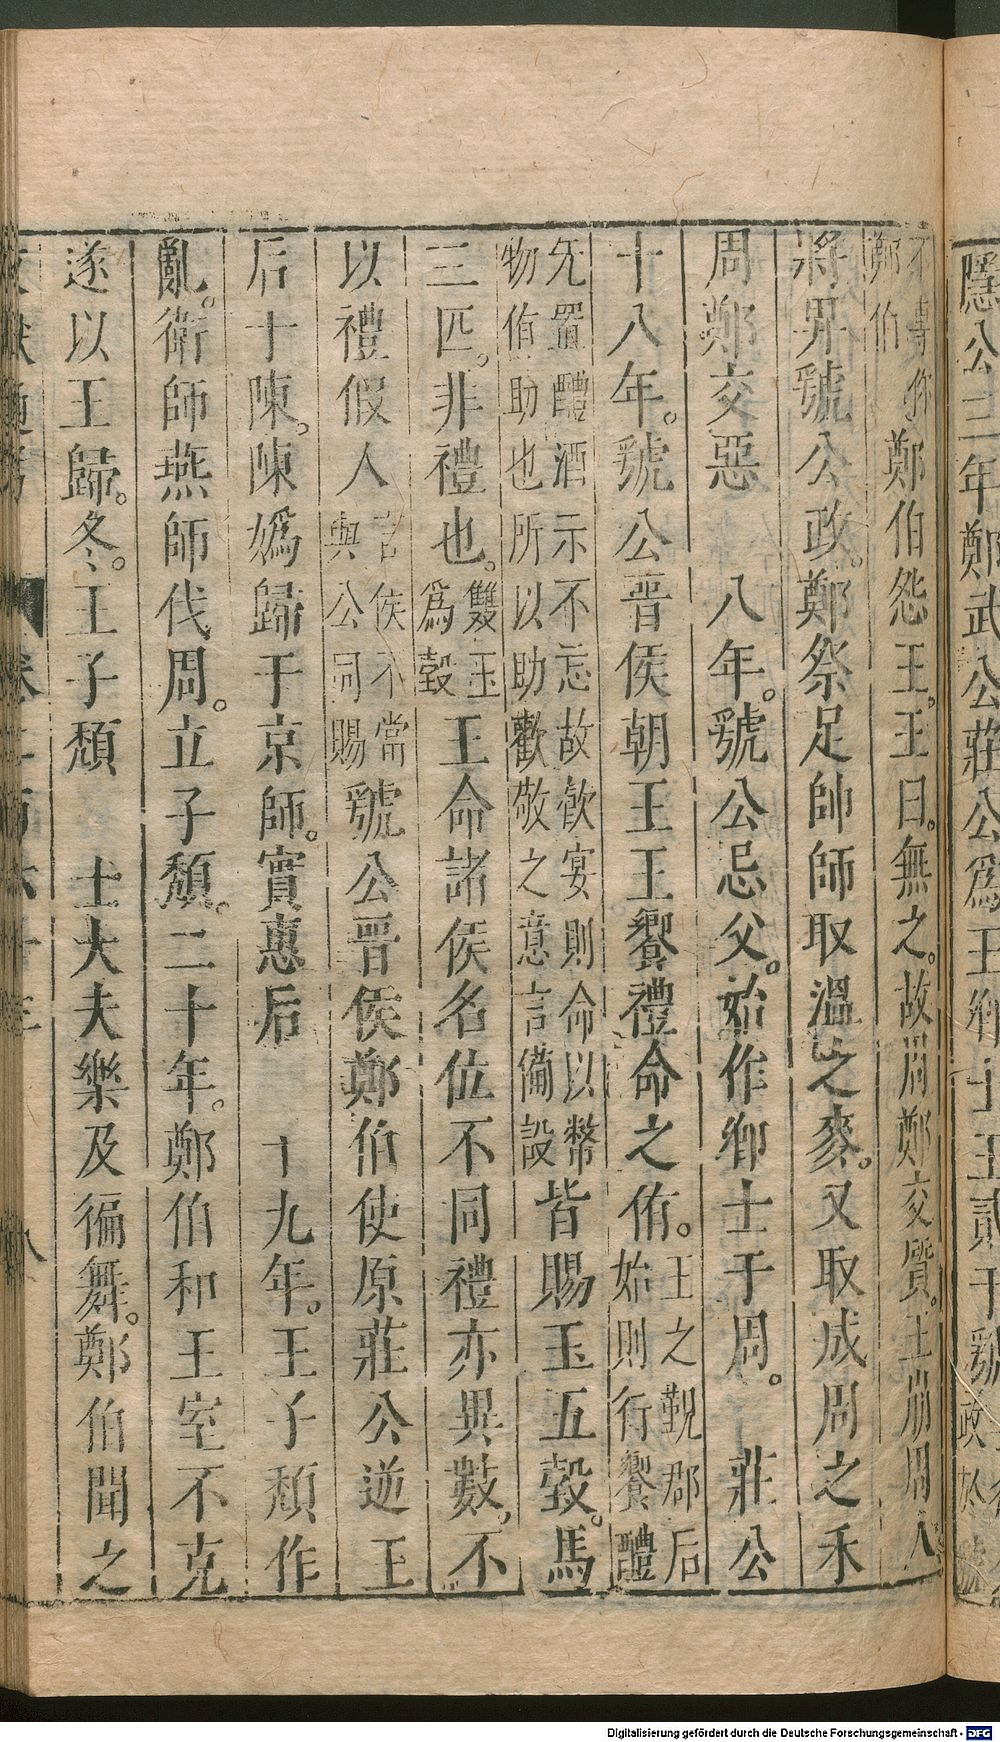 隱公三年鄭武公莊公爲王卿士王貳于虢
不專
鄭伯
鄭伯怨王。王曰。無之。故周鄭交質。王崩周人
將畀虢公政。鄭祭足帥師取溫之麥。又取成周之禾
周鄭交惡 八年。虢公忌父。始作卿士于周。 莊公
十八年。虢公晉侯朝王王饗禮命之侑。
王之覲郡后
始則行饗醴
先置醴酒示不忘故飲宴則命以幣
物侑助也所以助歡敬之意言備設
皆賜玉五瑴。馬
三匹。非禮也。
雙玉
爲瑴
王命諸侯名位不同禮亦異數。不
以禮假人
言侯不當
與公同賜
虢公晉侯鄭伯使原莊公逆王
后于陳。陳嬀歸于京師。實惠后 十九年。王子頹作
亂。衛師燕師伐周。立子頹。二十年。鄭伯和王室不克
遂以王歸。冬。王子頹 士大夫樂及徧舞。鄭伯聞之
Digitalisierung gefördert durch die Deutsche Forschungsgemeinschaft - DFG